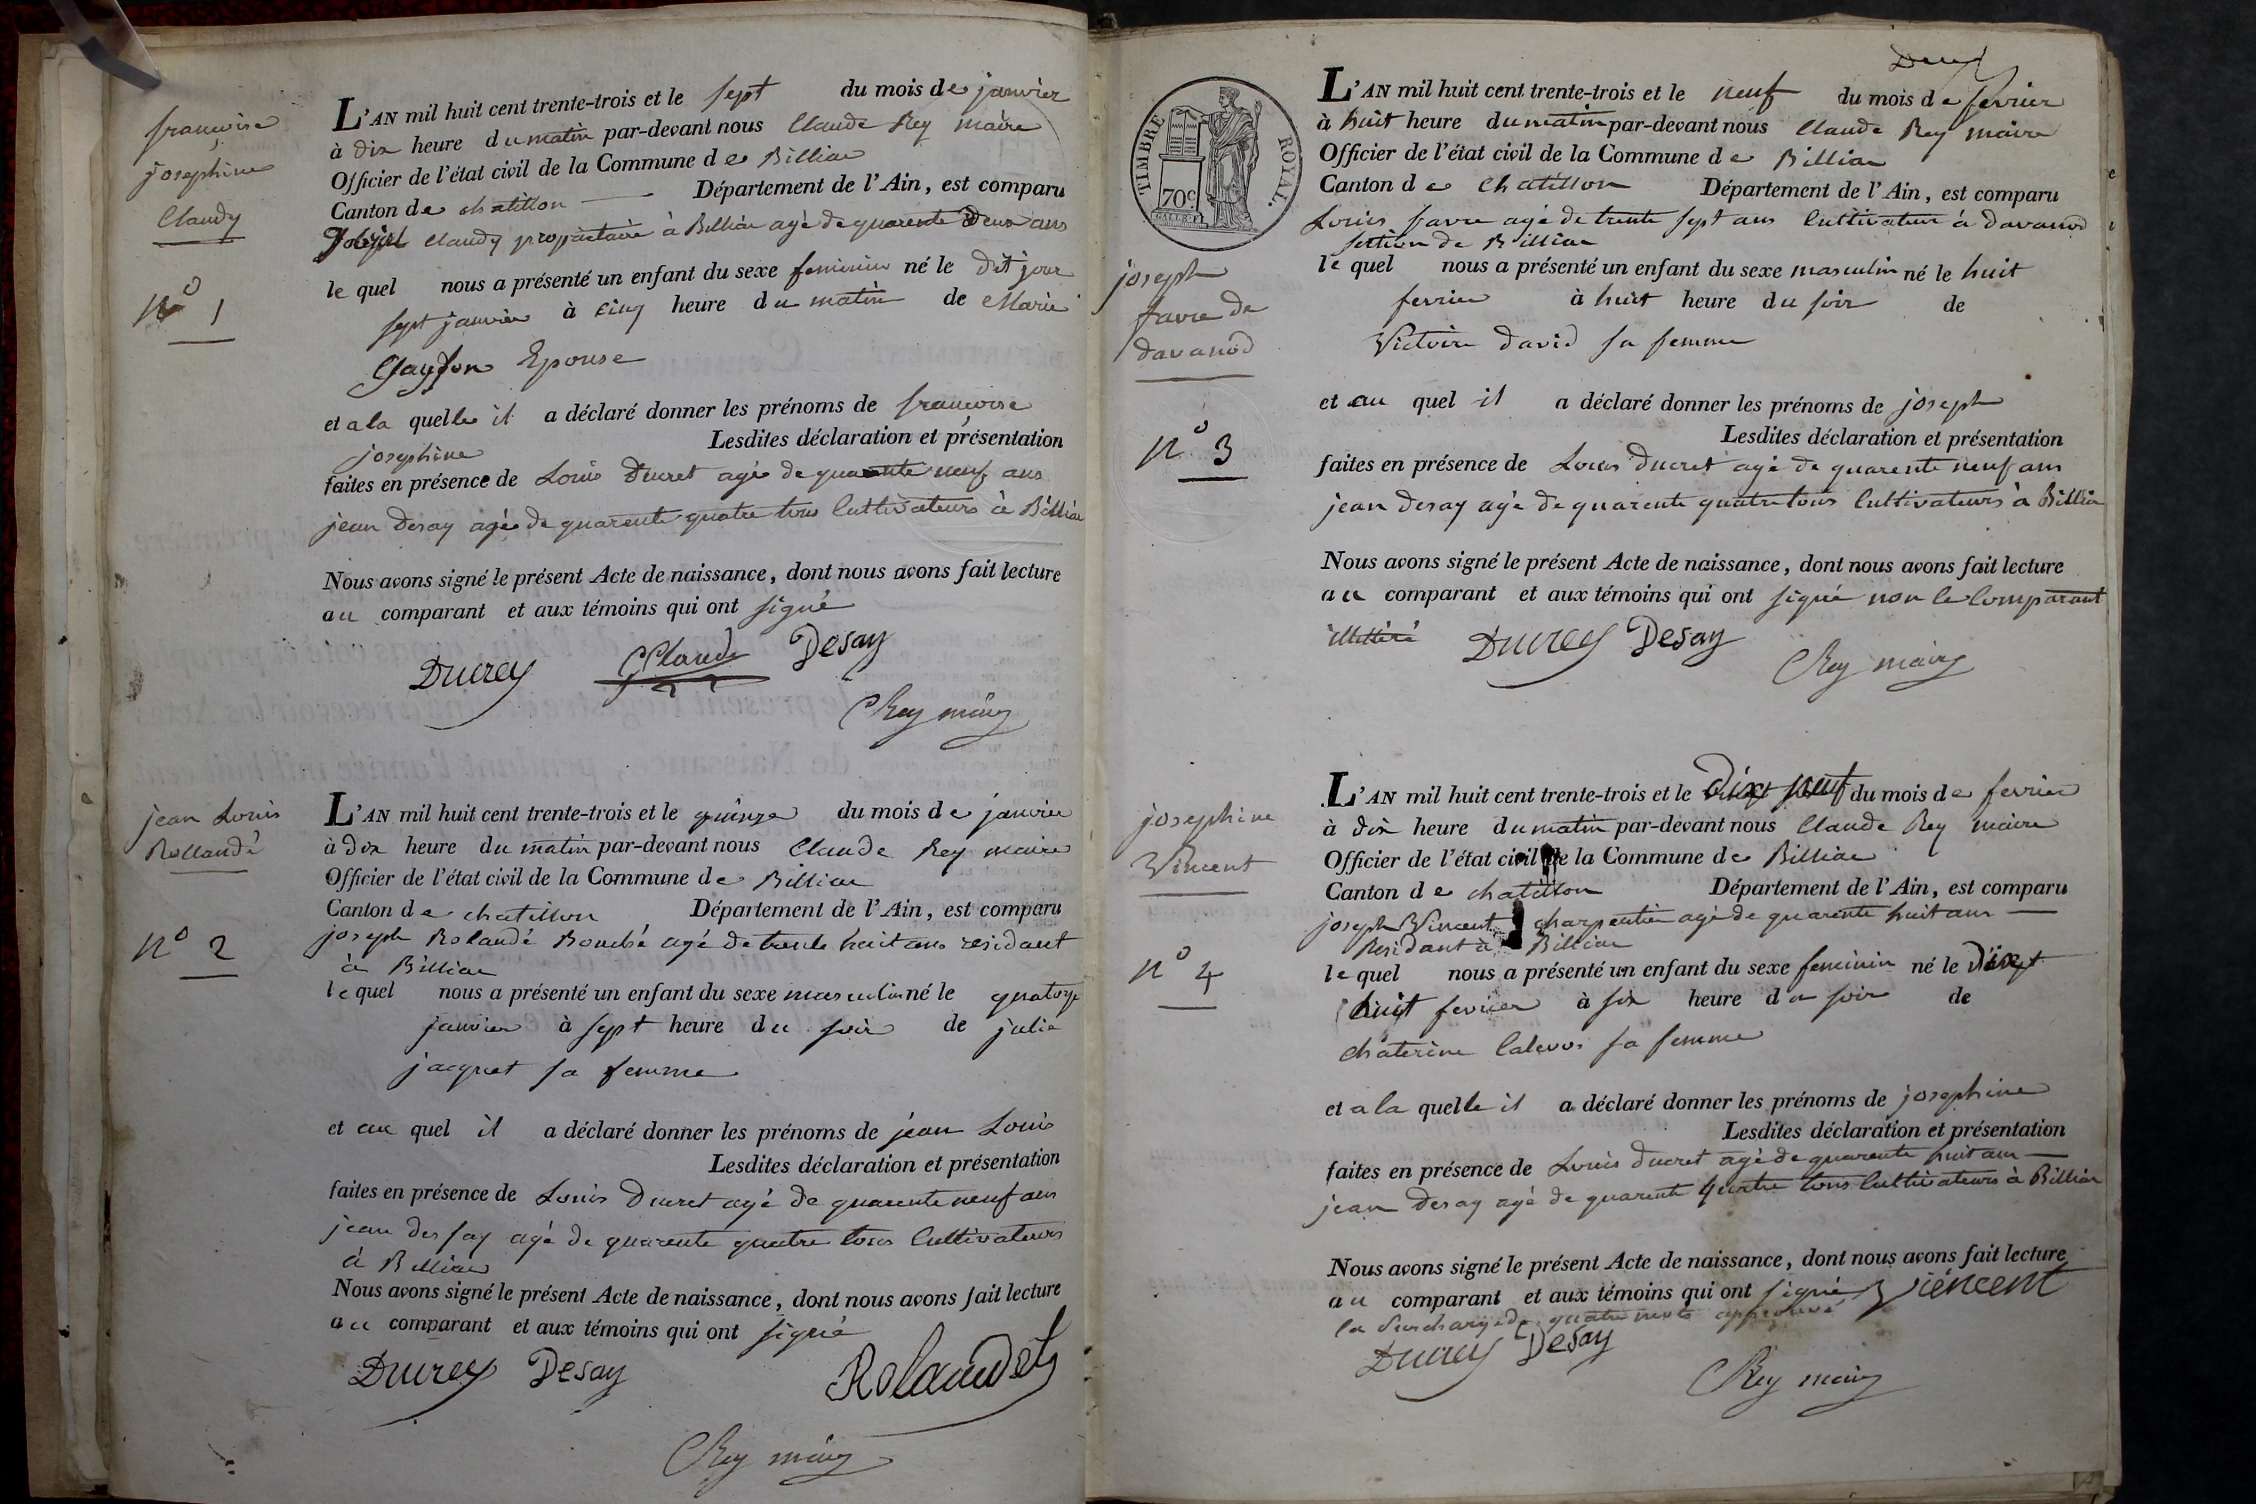 françoise
josephine
Claudy
N° 1
L'AN mil huit cent trente-trois et le sept du mois de janvier
à dix heure du matin par-devant nous Claude Rey maire
Officier de l'état civil de la Commune de Billiac
Canton de chatillon Département de l'Ain, est comparu
Claudy propriétaire à Billiac agé de quarente deux ans
le quel nous a présenté un enfant du sexe feminin né le dit jour
sept janvier à cinq heure du matin de Marie
Epouse
et a la quelle il a déclaré donner les prénoms de françoise
josephine Lesdites déclaration et présentation
faites en présence de Louis Ducret agé de quarente neuf ans
jean desay agé de quarente quatre tous Cultivateurs à Billiac
Nous avons signé le présent Acte de naissance, dont nous avons fait lecture
au comparant et aux témoins qui ont signé
Ducrey Claude Desay
Rey maire
jean Louis
Rollandé
N° 2
L'AN mil huit cent trente-trois et le quinze du mois de janvier
à dix heure du matin par-devant nous Claude Rey maire
Officier de l'état civil de la Commune de Billiac
Canton de chatillon Département de l'Ain, est comparu
joseph Rolandé Bouché agé de trente huit ans residant
à Billiac
le quel nous a présenté un enfant du sexe masculin né le quatorze
janvier à sept heure du soir de julie
jacquet sa femme
et au quel il a déclaré donner les prénoms de jean Louis
Lesdites déclaration et présentation
faites en présence de Louis Ducret agé de quarente neuf ans
jean dessay agé de quarente quatre tous Cultivateurs
à Billiac
Nous avons signé le présent Acte de naissance, dont nous avons fait lecture
au comparant et aux témoins qui ont signé
Ducrey Desay Rolandet
Rey maire
Deux
TIMBRE ROYAL.
70c
joseph
favre de
davanod
N° 3
L'AN mil huit cent trente-trois et le neuf du mois de fevrier
à huit heure du matin par-devant nous Claude Rey maire
Officier de l'état civil de la Commune de Billiac
Canton de Chatillon Département de l'Ain, est comparu
Louis favre agé de trente sept ans Cultivateur à davanod
section de Billiac
le quel nous a présenté un enfant du sexe masculin né le huit
fevrier à huit heure du soir de
Victoire david sa femme
et au quel il a déclaré donner les prénoms de joseph
Lesdites déclaration et présentation
faites en présence de Louis Ducret agé de quarente neuf ans
jean desay agé de quarente quatre tous Cultivateurs à Billiac
Nous avons signé le présent Acte de naissance, dont nous avons fait lecture
au comparant et aux témoins qui ont signé non le Comparant
illitéré Ducrey Desay
Rey maire
josephine
Vincent
N° 4
L'AN mil huit cent trente-trois et le dix neuf du mois de fevrier
à dix heure du matin par-devant nous Claude Rey maire
Officier de l'état civil de la Commune de Billiac
Canton de chatillon Département de l'Ain, est comparu
joseph Vincent charpentier agé de quarente huit ans
Residant à Billiac
le quel nous a présenté un enfant du sexe feminin né le dix
huit fevrier à six heure du soir de
Chaterine sa femme
et a la quelle il a déclaré donner les prénoms de josephine
Lesdites déclaration et présentation
faites en présence de Louis ducret agé de quarente huit ans
jean desay agé de quarente quatre tous Cultivateurs à Billiac
Nous avons signé le présent Acte de naissance, dont nous avons fait lecture
au comparant et aux témoins qui ont signé Viencent
la surcharge de quatre mots approuvé
Ducrey Desay
Rey maire